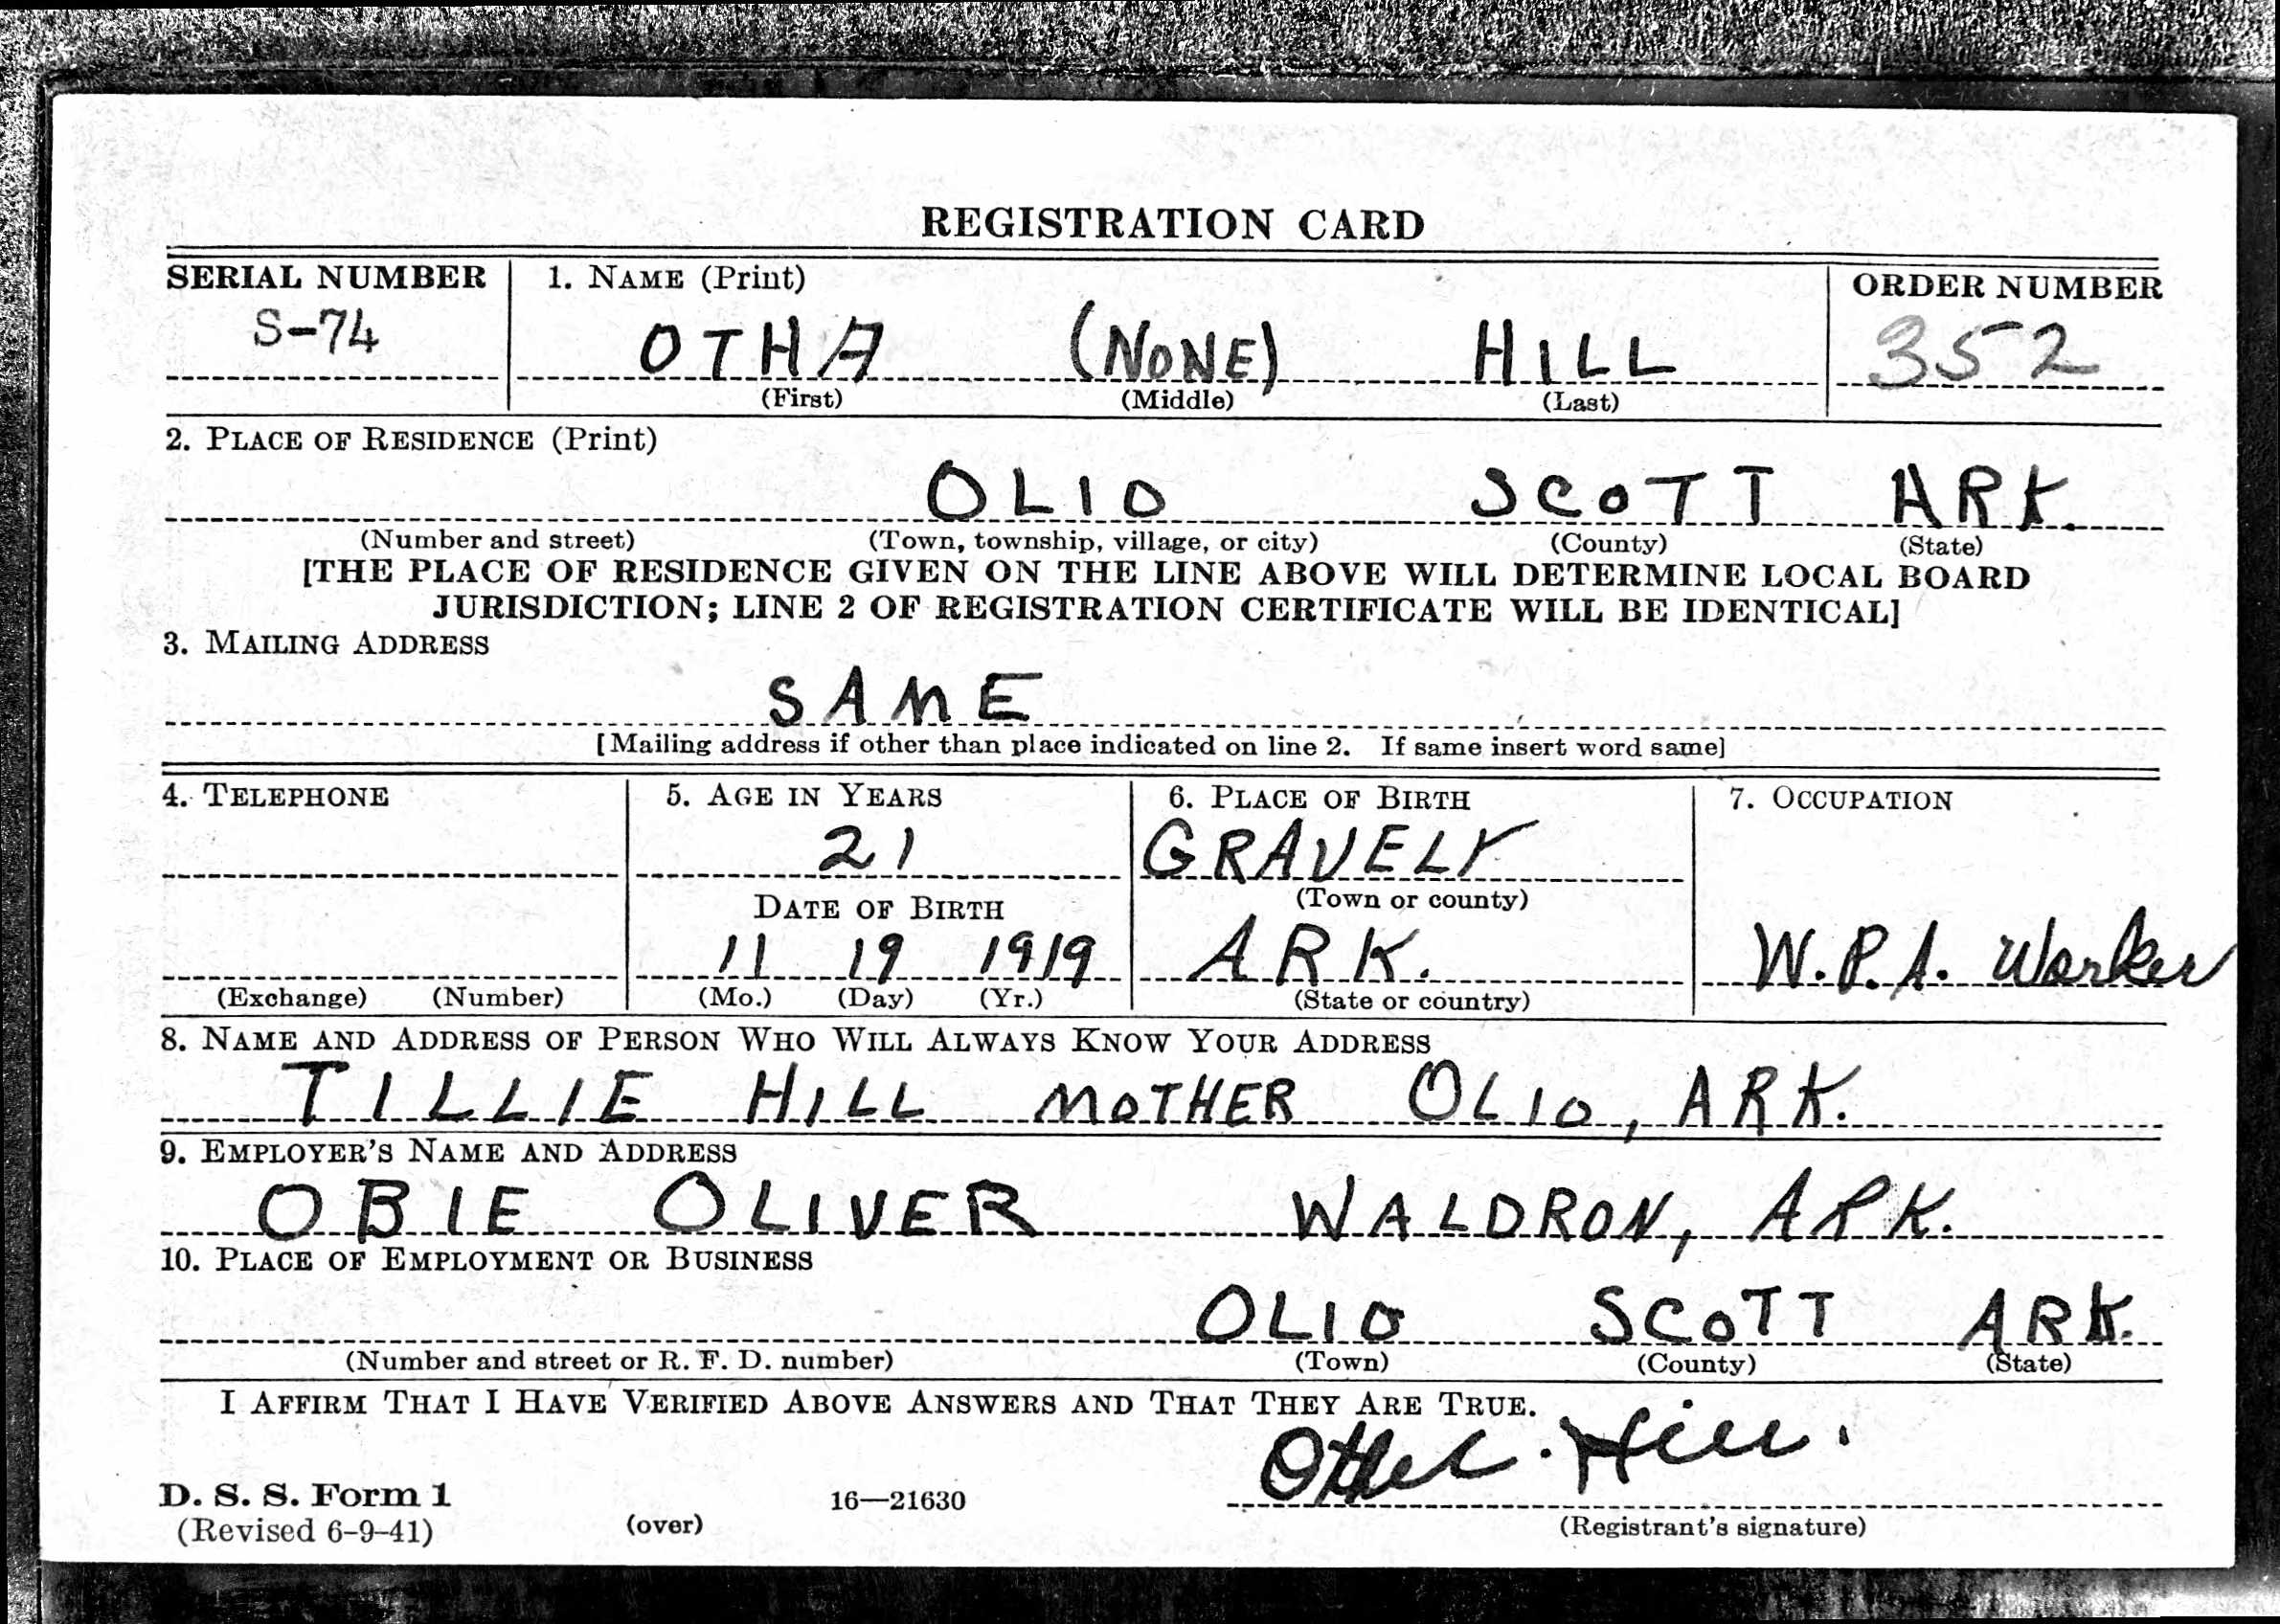 REGISTRATION CARD
SERIAL NUMBER 1. NAME (Print) ORDER NUMBER
S-74 OTHA (NONE) HILL 352
(First) (Middle) (Last)
2. PLACE OF RESIDENCE (Print)
OLIO SCOTT ARK.
(Number and street) (Town, township, village, or city) (County) (State)
[THE PLACE OF RESIDENCE GIVEN ON THE LINE ABOVE WILL DETERMINE LOCAL BOARD
JURISDICTION; LINE 2 OF REGISTRATION CERTIFICATE WILL BE IDENTICAL]
3. MAILING ADDRESS
SAME
[Mailing address if other than place indicated on line 2. If same insert word same]
4. TELEPHONE 5. AGE IN YEARS 6. PLACE OF BIRTH 7. OCCUPATION
21 GRAVELY
DATE OF BIRTH (Town or county)
11 19 1919 ARK. W.P.A. Worker
(Exchange) (Number) (Mo.) (Day) (Yr.) (State or country)
8. NAME AND ADDRESS OF PERSON WHO WILL ALWAYS KNOW YOUR ADDRESS
TILLIE HILL MOTHER OLIO, ARK.
9. EMPLOYER'S NAME AND ADDRESS
OBIE OLIVER WALDRON, ARK.
10. PLACE OF EMPLOYMENT OR BUSINESS
OLIO SCOTT ARK.
(Number and street or R. F. D. number) (Town) (County) (State)
I AFFIRM THAT I HAVE VERIFIED ABOVE ANSWERS AND THAT THEY ARE TRUE.
Hill.
D. S. S. Form 1 16—21630
(Revised 6-9-41) (over) (Registrant's signature)